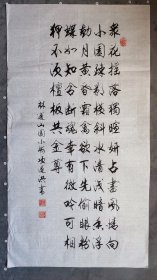 衆花摇落獨暄妍占盡風情向
小園疏影横斜水清浅暗香浮
動月黄昏霜禽欲下先偷眼粉
蝶如知合断魂幸有微吟可相
狎不須檀板共金尊
林逋山園小梅 書